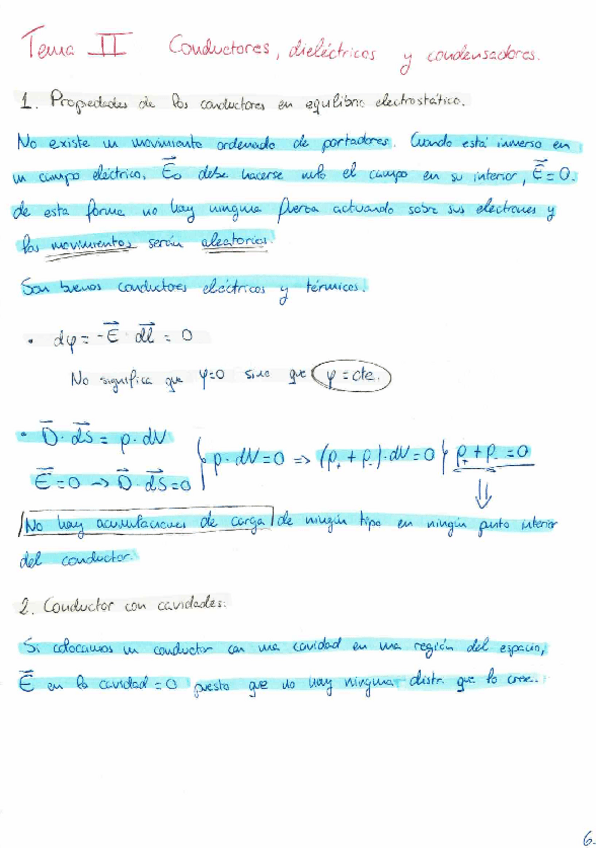 Tema II Conductores, dieléctricos y condensadores.
1. Propiedades de los conductores en equilibrio electrostático.
No existe un movimiento ordenado de portadores. Cuando está inmerso en
un campo eléctrico, E⃗₀ debe hacerse nulo el campo en su interior, E⃗=0.
de esta forma no hay ninguna fuerza actuando sobre sus electrones y
los movimientos serán aleatorios.
Son buenos conductores eléctricos y térmicos.
• dφ = -E⃗ · dl⃗ = 0
No significa que φ=0 sino que φ=cte.
• D⃗ · dS⃗ = ρ · dV
E⃗=0 → D⃗ · dS⃗=0 } ρ · dV=0 => (ρ₊ + ρ₋) · dV=0 } ρ₊ + ρ₋ =0
⇓
No hay acumulaciones de carga de ningún tipo en ningún punto interior
del conductor.
2. Conductor con cavidades.
Si colocamos un conductor con una cavidad en una región del espacio,
E⃗ en la cavidad=0 puesto que no hay ninguna distr. que lo cree.
6.